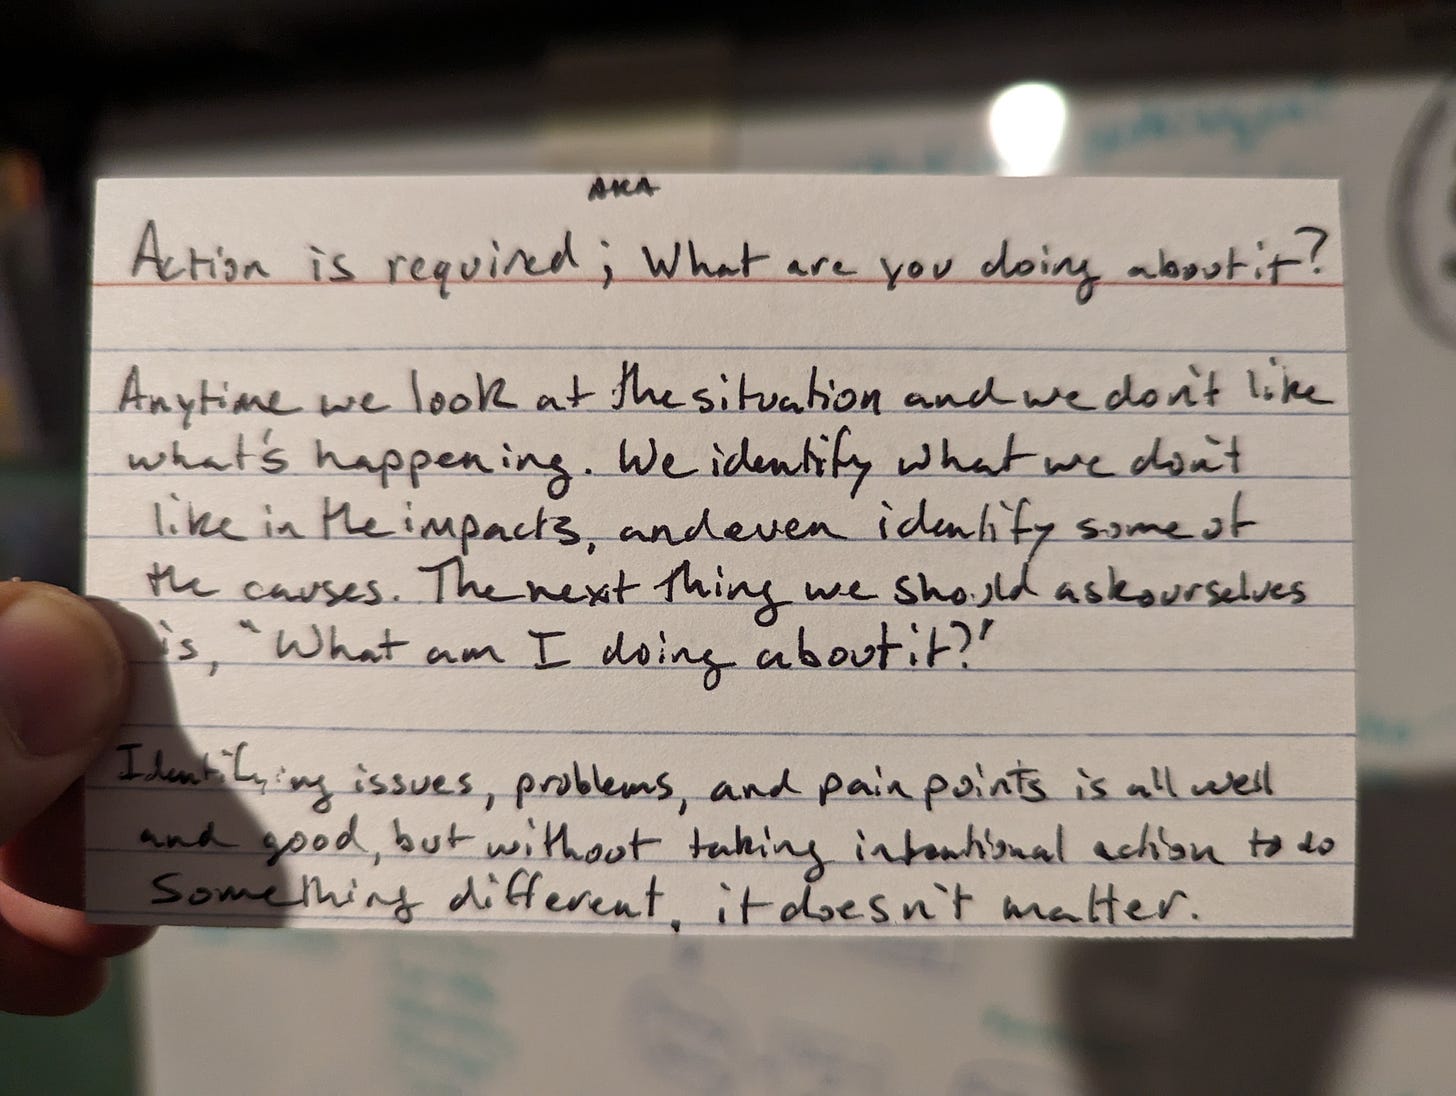 AKA
Action is required; What are you doing about it?
Anytime we look at the situation and we don't like
what's happening. We identify what we don't
like in the impacts, and even identify some of
the causes. The next thing we should ask ourselves
is, "What am I doing about it?"
Identifying issues, problems, and pain points is all well
and good, but without taking intentional action to do
something different, it doesn't matter.